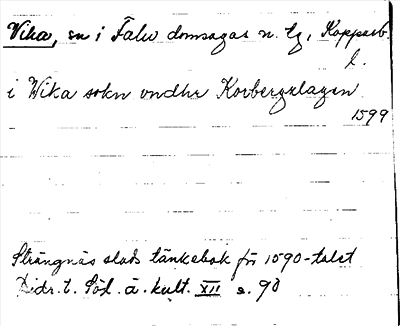 Vika, sn i Falu domsagas n. tg, Kopparb.
l.
i Wika sokn vndhr Kovbergzlagen
1599
Strängnäs stads tänkebok för 1590-talet
Bidr. t. Söd. ä. kult. XII s. 90